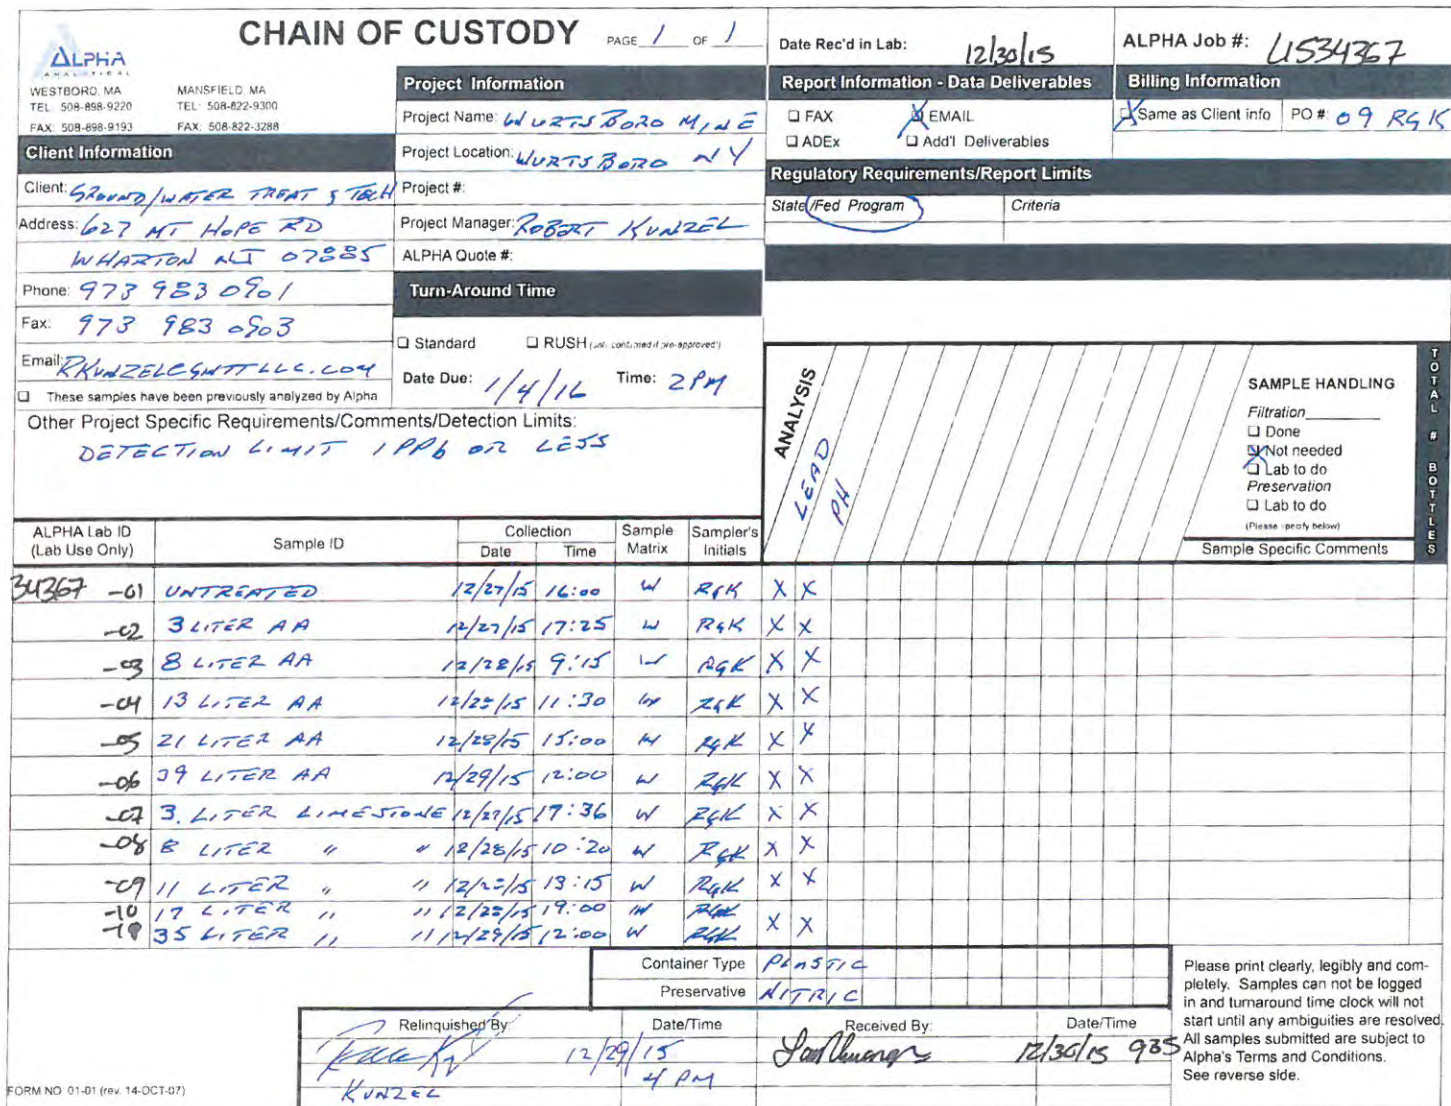 CHAIN OF CUSTODY PAGE 1 OF 1
ALPHA
ANALYTICAL
WESTBORO, MA MANSFIELD, MA
TEL: 508-898-9220 TEL: 508-822-9300
FAX: 508-898-9193 FAX: 508-822-3288
Date Rec'd in Lab: 12/30/15
ALPHA Job #: L1534367
Client Information
Client: GROUND/WATER TREAT & TECH
Address: 627 MT HOPE RD
WHARTON NJ 07885
Phone: 973 983 0901
Fax: 973 983 0903
Email: RKUNZEL@GWTTLLC.COM
☐ These samples have been previously analyzed by Alpha
Project Information
Project Name: WURTSBORO MINE
Project Location: WURTSBORO NY
Project #:
Project Manager: ROBERT KUNZEL
ALPHA Quote #:
Turn-Around Time
☐ Standard ☐ RUSH (only confirmed if pre-approved!)
Date Due: 1/4/16 Time: 2PM
Report Information - Data Deliverables
☐ FAX ☒ EMAIL
☐ ADEx ☐ Add'l Deliverables
Billing Information
☒ Same as Client info PO #: 09 RGK
Regulatory Requirements/Report Limits
State/Fed Program Criteria
Other Project Specific Requirements/Comments/Detection Limits:
DETECTION LIMIT 1 PPb OR LESS
ANALYSIS
LEAD
PH
SAMPLE HANDLING
Filtration
☐ Done
☒ Not needed
☐ Lab to do
Preservation
☐ Lab to do
(Please specify below)
Sample Specific Comments
TOTAL # BOTTLES
ALPHA Lab ID (Lab Use Only) Sample ID Collection Date Time Sample Matrix Sampler's Initials
34367 -01 UNTREATED 12/27/15 16:00 W RGK X X
-02 3 LITER AA 12/27/15 17:25 W RGK X X
-03 8 LITER AA 12/28/15 9:15 W RGK X X
-04 13 LITER AA 12/28/15 11:30 W RGK X X
-05 21 LITER AA 12/28/15 15:00 W RGK X X
-06 39 LITER AA 12/29/15 12:00 W RGK X X
-07 3. LITER LIMESTONE 12/27/15 17:36 W RGK X X
-08 8 LITER " " 12/28/15 10:20 W RGK X X
-09 11 LITER " " 12/28/15 13:15 W RGK X X
-10 17 LITER " " 12/28/15 19:00 W RGK
35 LITER " " 12/29/15 12:00 W RGK X X
Container Type PLASTIC
Preservative NITRIC
Relinquished By: Date/Time Received By: Date/Time
12/29/15 12/30/15 935
KUNZEL 4 PM
Please print clearly, legibly and com-
pletely. Samples can not be logged
in and turnaround time clock will not
start until any ambiguities are resolved.
All samples submitted are subject to
Alpha's Terms and Conditions.
See reverse side.
FORM NO: 01-01 (rev. 14-OCT-07)